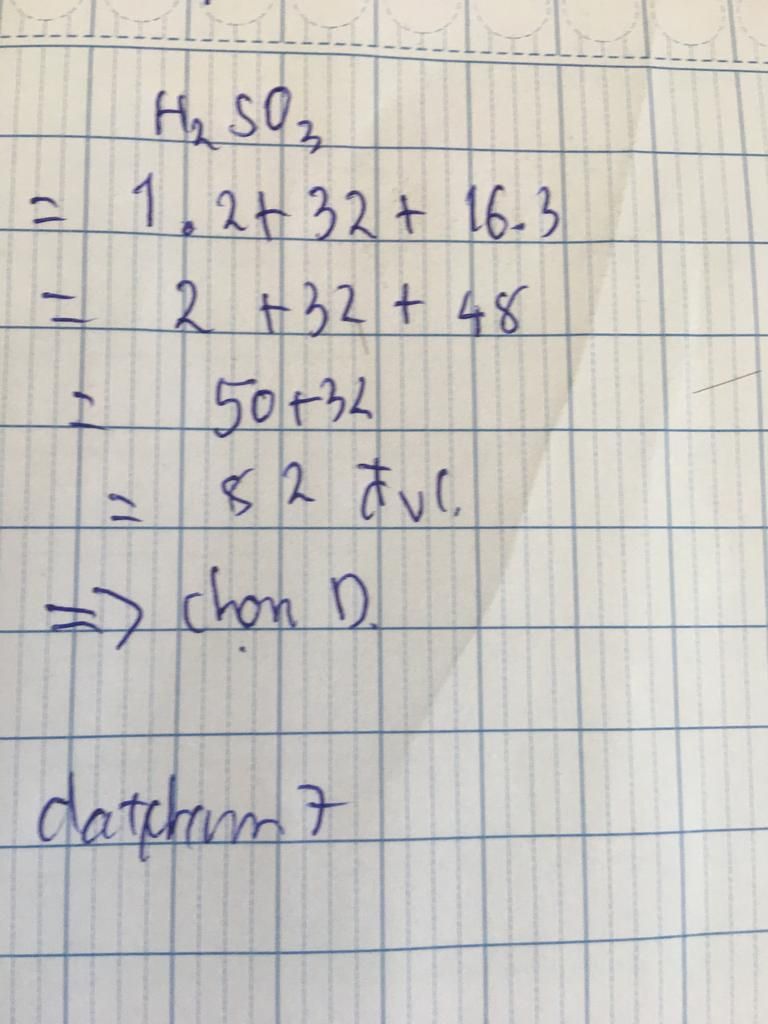 H₂SO₃
= 1.2+32 + 16.3
= 2 +32 + 48
= 50+32
= 82 đvC.
=> chọn D.
datpham7